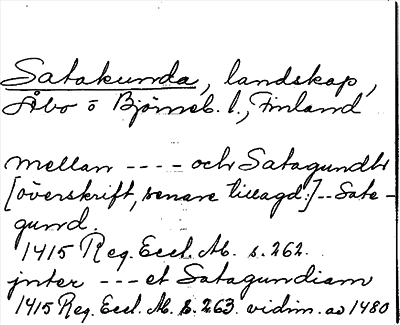 Satakunda, landskap,
Åbo o Björneb. l., Finland
mellan ---- och Satagundhr
[överskrift, senare tillagd:]--Sata-
gund.
1415 Reg. Eccl. Ab. s. 262.
jnter --- et Satagundiam
1415 Reg. Eccl. Ab. s. 263. vidim. av 1480